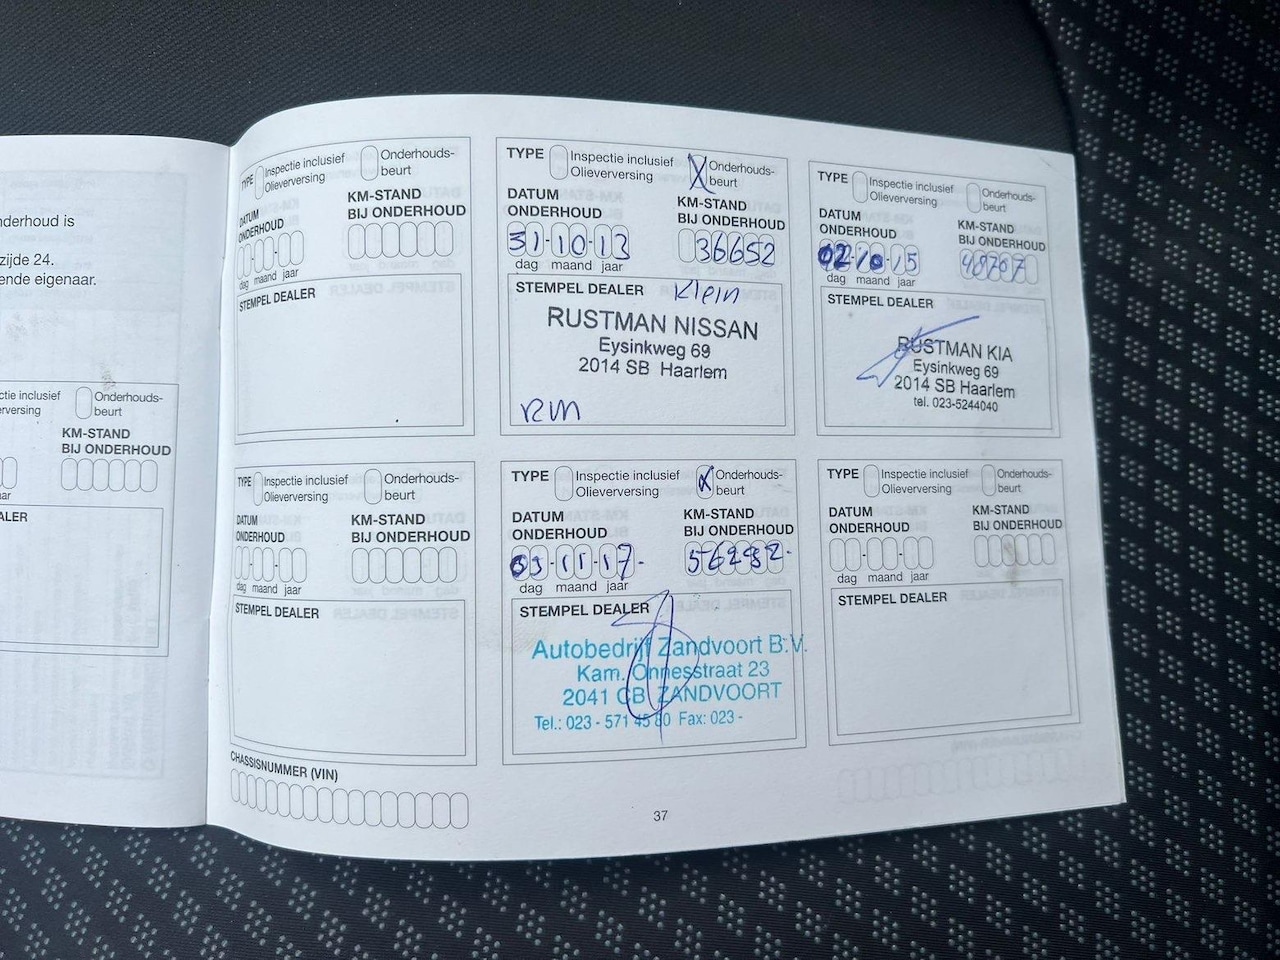 nderhoud is
zijde 24.
ende eigenaar.
ctie inclusief
eversing
Onderhouds-
beurt
KM-STAND
BIJ ONDERHOUD
ar
ALER
TYPE
Inspectie inclusief
Olieverversing
Onderhouds-
beurt
DATUM
ONDERHOUD
KM-STAND
BIJ ONDERHOUD
dag maand jaar
STEMPEL DEALER
TYPE
Inspectie inclusief
Olieverversing
X
Onderhouds-
beurt
DATUM
ONDERHOUD
KM-STAND
BIJ ONDERHOUD
31-10-13
36652
dag maand jaar
STEMPEL DEALER
Klein
RUSTMAN NISSAN
Eysinkweg 69
2014 SB Haarlem
TYPE
Inspectie inclusief
Olieverversing
Onderhouds-
beurt
DATUM
ONDERHOUD
KM-STAND
BIJ ONDERHOUD
02-10-15
dag maand jaar
STEMPEL DEALER
RUSTMAN KIA
Eysinkweg 69
2014 SB Haarlem
tel. 023-5244040
TYPE
Inspectie inclusief
Olieverversing
Onderhouds-
beurt
DATUM
ONDERHOUD
KM-STAND
BIJ ONDERHOUD
dag maand jaar
STEMPEL DEALER
TYPE
Inspectie inclusief
Olieverversing
X
Onderhouds-
beurt
DATUM
ONDERHOUD
KM-STAND
BIJ ONDERHOUD
03-11-17-
dag maand jaar
STEMPEL DEALER
Autobedrijf Zandvoort B.V.
Kam. Onnesstraat 23
2041 CB ZANDVOORT
Tel.: 023 - 571 45 80 Fax: 023 -
TYPE
Inspectie inclusief
Olieverversing
Onderhouds-
beurt
DATUM
ONDERHOUD
KM-STAND
BIJ ONDERHOUD
dag maand jaar
STEMPEL DEALER
CHASSISNUMMER (VIN)
37